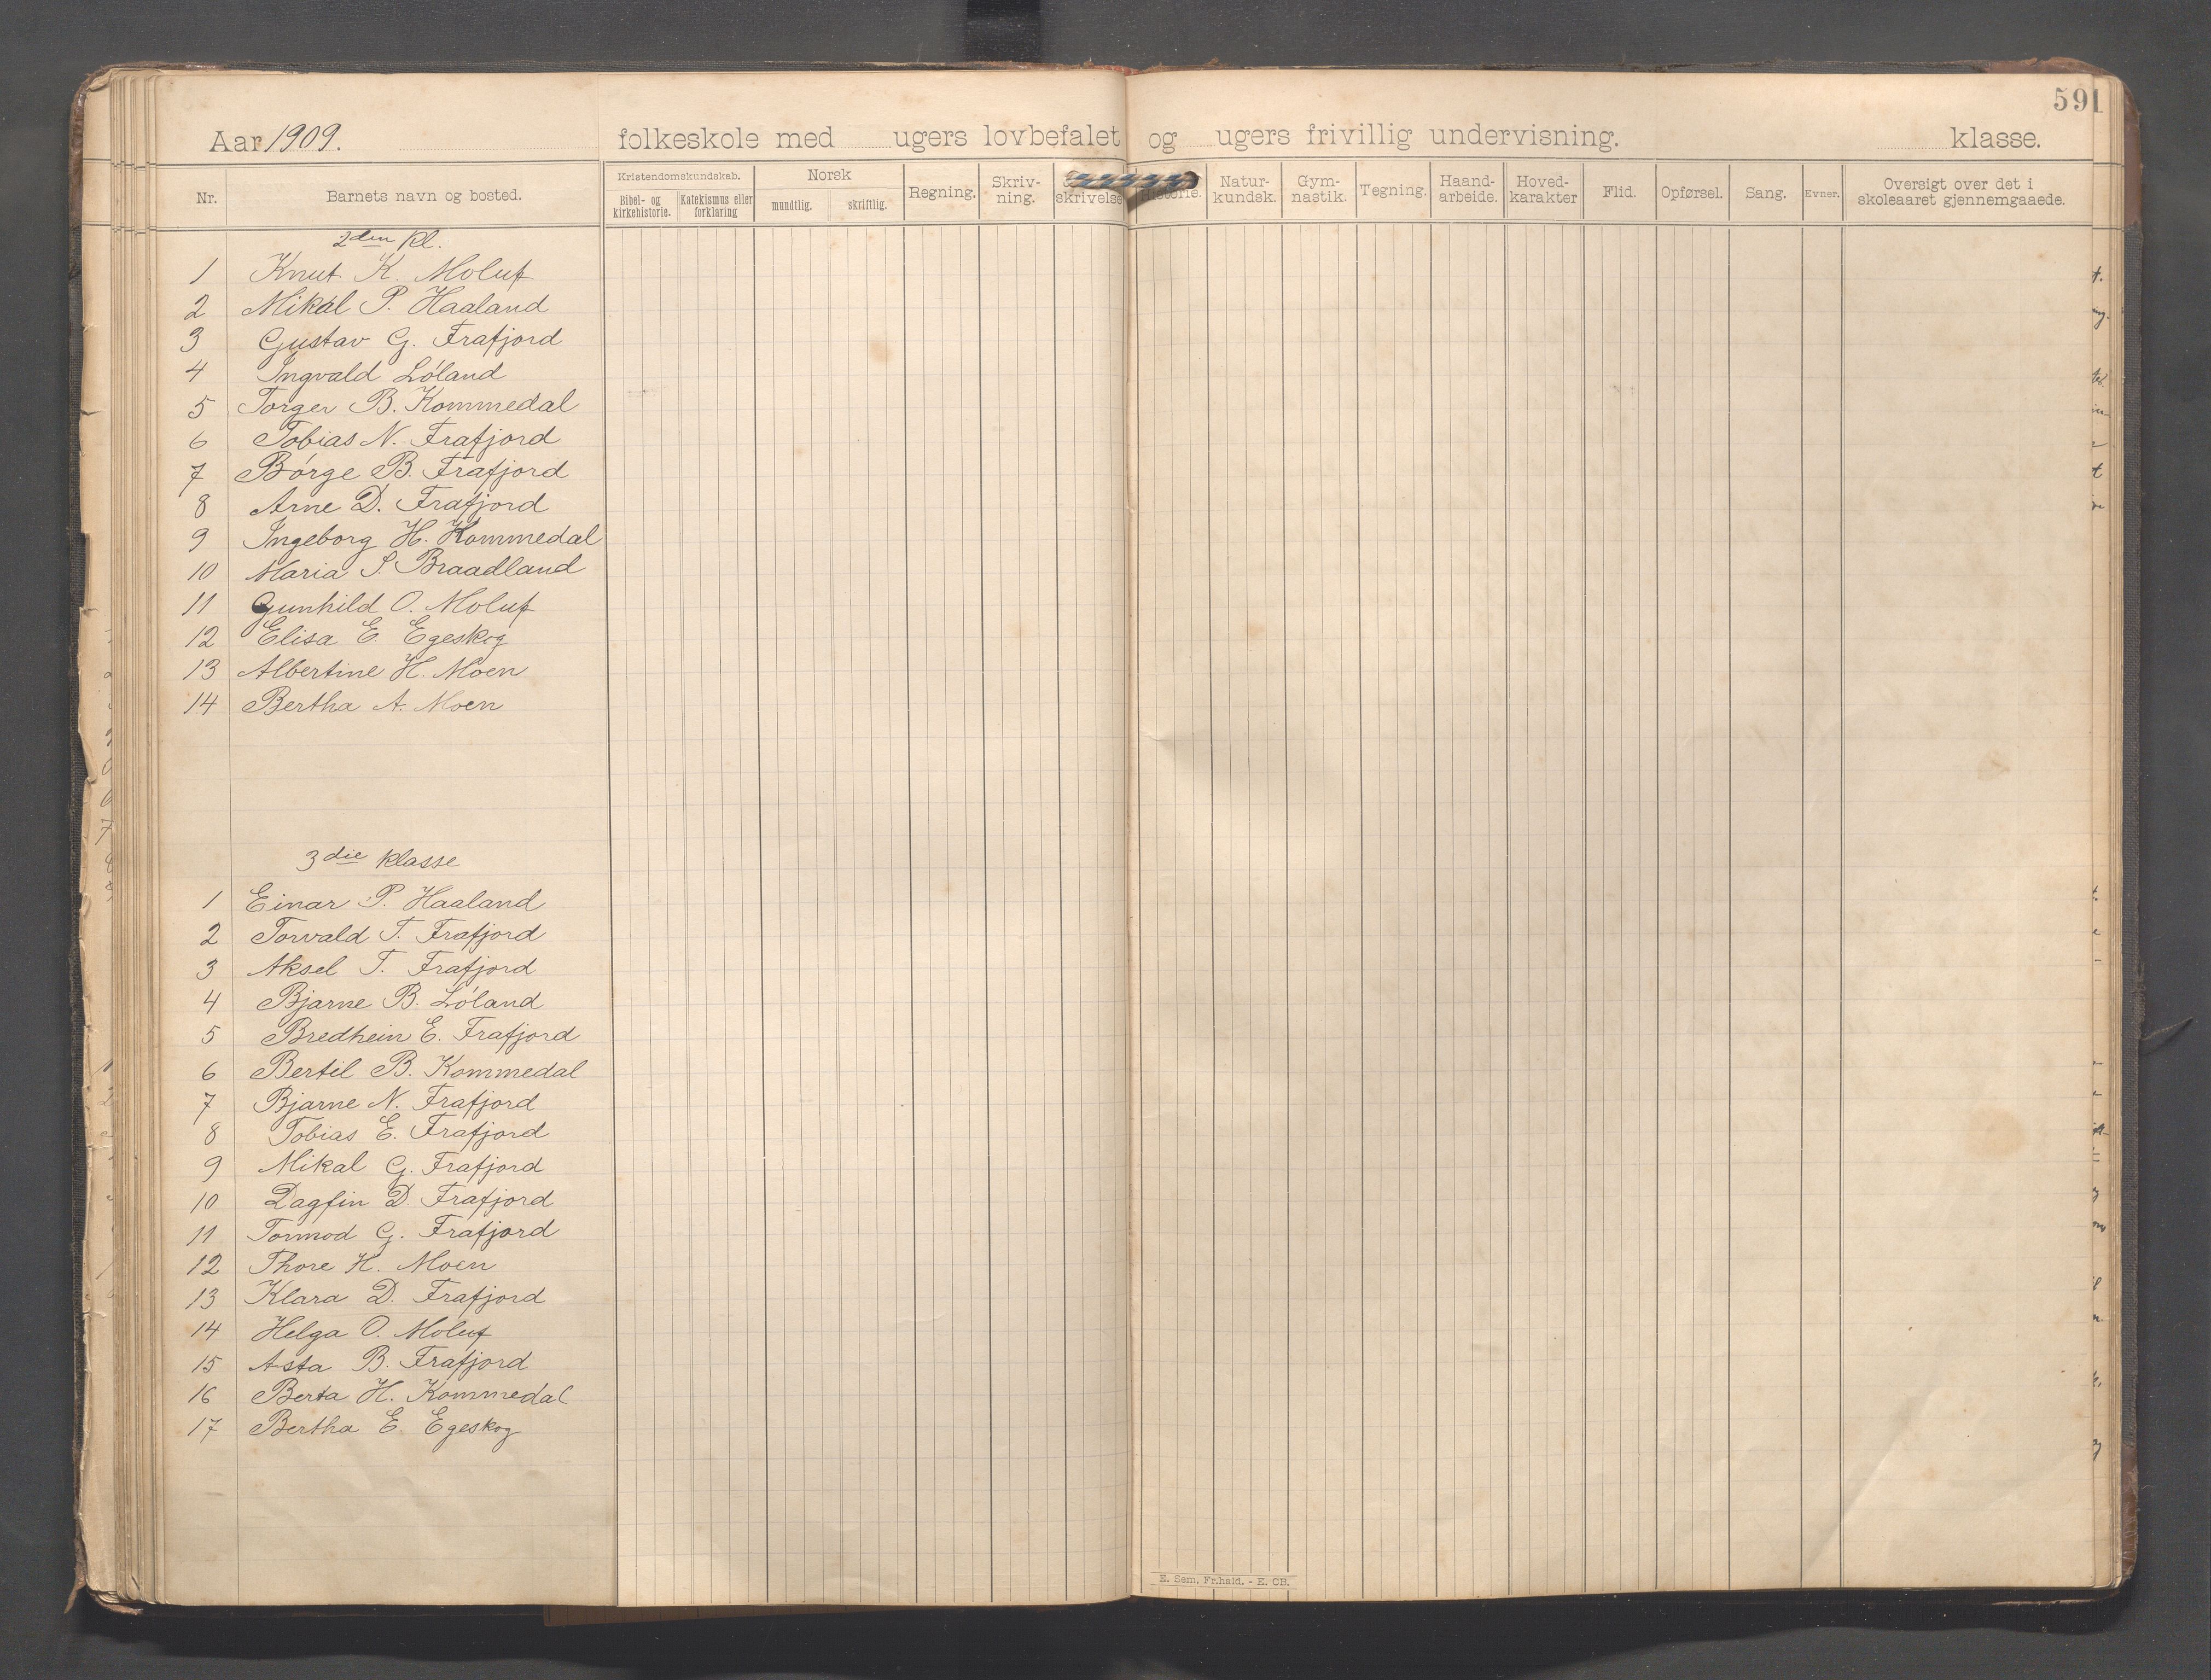 591
Aar 1909. folkeskole med ugers lovbefalet og ugers frivillig undervisning. klasse.
Nr. Barnets navn og bosted. Kristendomskundskab. Bibel- og kirkehistorie. Katekismus eller forklaring Norsk mundtlig. skriftlig. Regning. Skriv-ning. skrivelse Historie. Natur-kundsk. Gym-nastik. Tegning. Haand-arbeide. Hoved-karakter Flid. Opførsel. Sang. Evner. Oversigt over det i skoleaaret gjennemgaaede.
2den Kl.
1 Knut K. Moluf
2 Mikal P. Haaland
3 Gustav G. Frafjord
4 Ingvald Lóland
5 Torger B. Kommedal
6 Tobias N. Frafjord
7 Bórge B. Frafjord
8 Arne D. Frafjord
9 Ingeborg H. Kommedal
10 Maria S. Braadland
11 Gunhild O. Moluf
12 Elisa E. Egeskog
13 Albertine H. Moen
14 Bertha A. Moen
3die klasse
1 Einar P. Haaland
2 Torvald T. Frafjord
3 Aksel T. Frafjord
4 Bjarne B. Lóland
5 Bredhein E. Frafjord
6 Bertil B. Kommedal
7 Bjarne N. Frafjord
8 Tobias E. Frafjord
9 Mikal G. Frafjord
10 Dagfin D. Frafjord
11 Tormod G. Frafjord
12 Thore H. Moen
13 Klara D. Frafjord
14 Helga O. Moluf
15 Asta B. Frafjord
16 Berta H. Kommedal
17 Bertha E. Egeskog
E. Sem, Fr.hald. - E. CB.